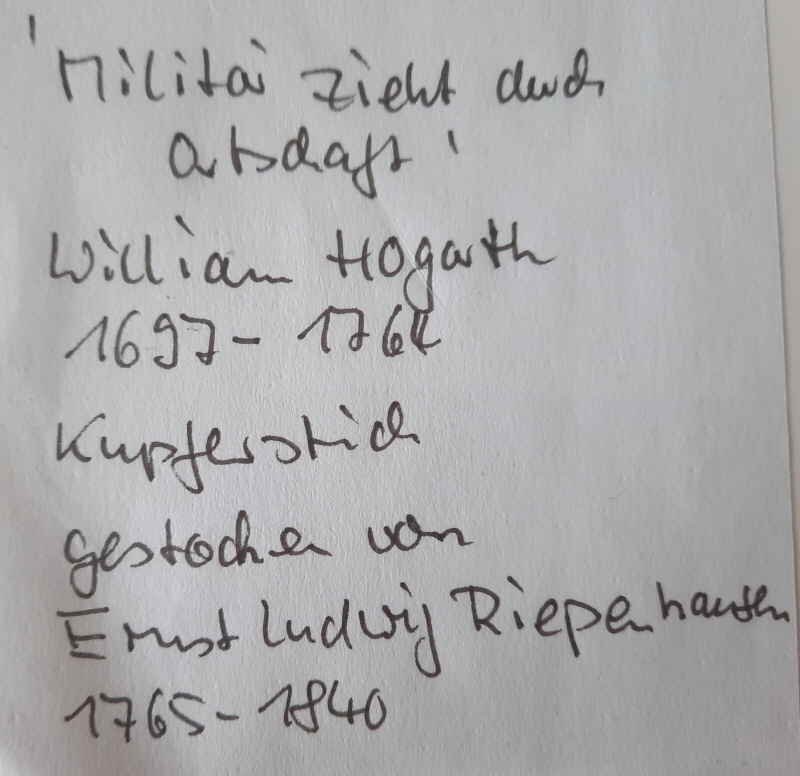 'Militär zieht durch
Ortschaft'
William Hogarth
1697 - 1764
Kupferstich
gestochen von
Ernst Ludwig Riepenhausen
1765 - 1840